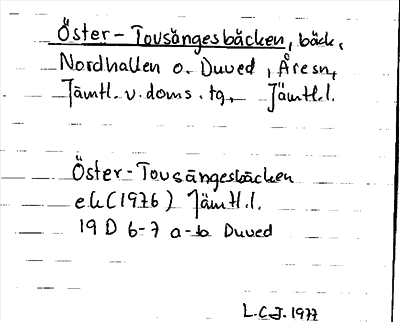 Öster-Tovsängesbäcken, bäck,
Nordhallen o. Duved, Åresn,
Jämtl. v. doms. tg, Jämtl.l.
Öster-Tovsängesbäcken
ek(1976) Jämtl.l.
19 D 6-7 a-b Duved
L.C.J. 1977